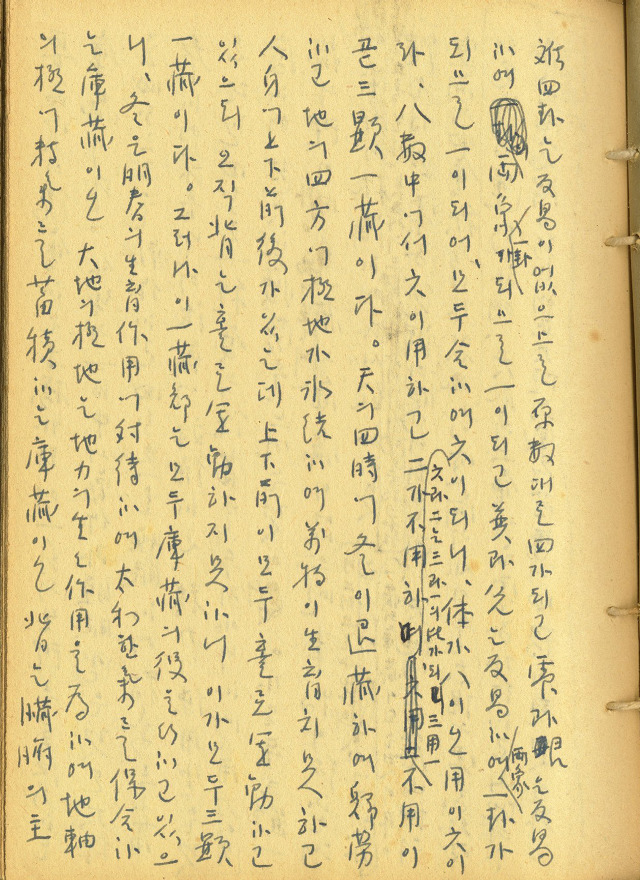 離四卦는 反易이 없으므로 原數대로 四가되고 震과 艮은 反易
하여 兩象이 一卦가 되므로 一이되고 巽과 兌는 反易하여 兩象이 一卦가
되므로 一이되어, 모두 合하여 六이되니, 体가 八이오 用이 六이
라, 八數中에서 六이用하고 二가不用하니 六과 二는 三과 一의比가되니 三用一不用이
곧 三顯一藏이다。天의四時에 冬이退藏하여 歸勞
하고 地의四方에 極地가 氷繞하여 萬物이 生育치 못하고
人身에 上下前後가 있는데 上下前이 모두 運動하고
있으되 오직 背는 홀로 運動하지못하니 이가모두 三顯
一藏이다。그러나 이一藏는 모두 庫藏의 役을 하고 있으
니, 冬은 明春의 生育作用에 対待하여 太和한氣를 保合하
는 庫藏이오 大地의極地는 地力의 生生作用을 爲하여 地軸
의 極에 熱氣를 蓄積하는 庫藏이오 背는 臟腑의 主